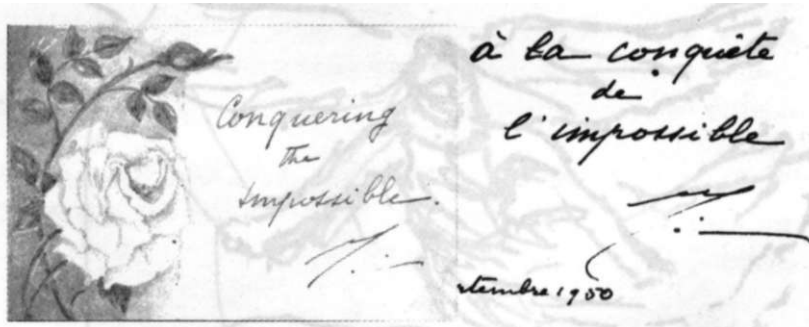 Conquering
the
impossible.
à la conquête
de
l'impossible
tembre 1950